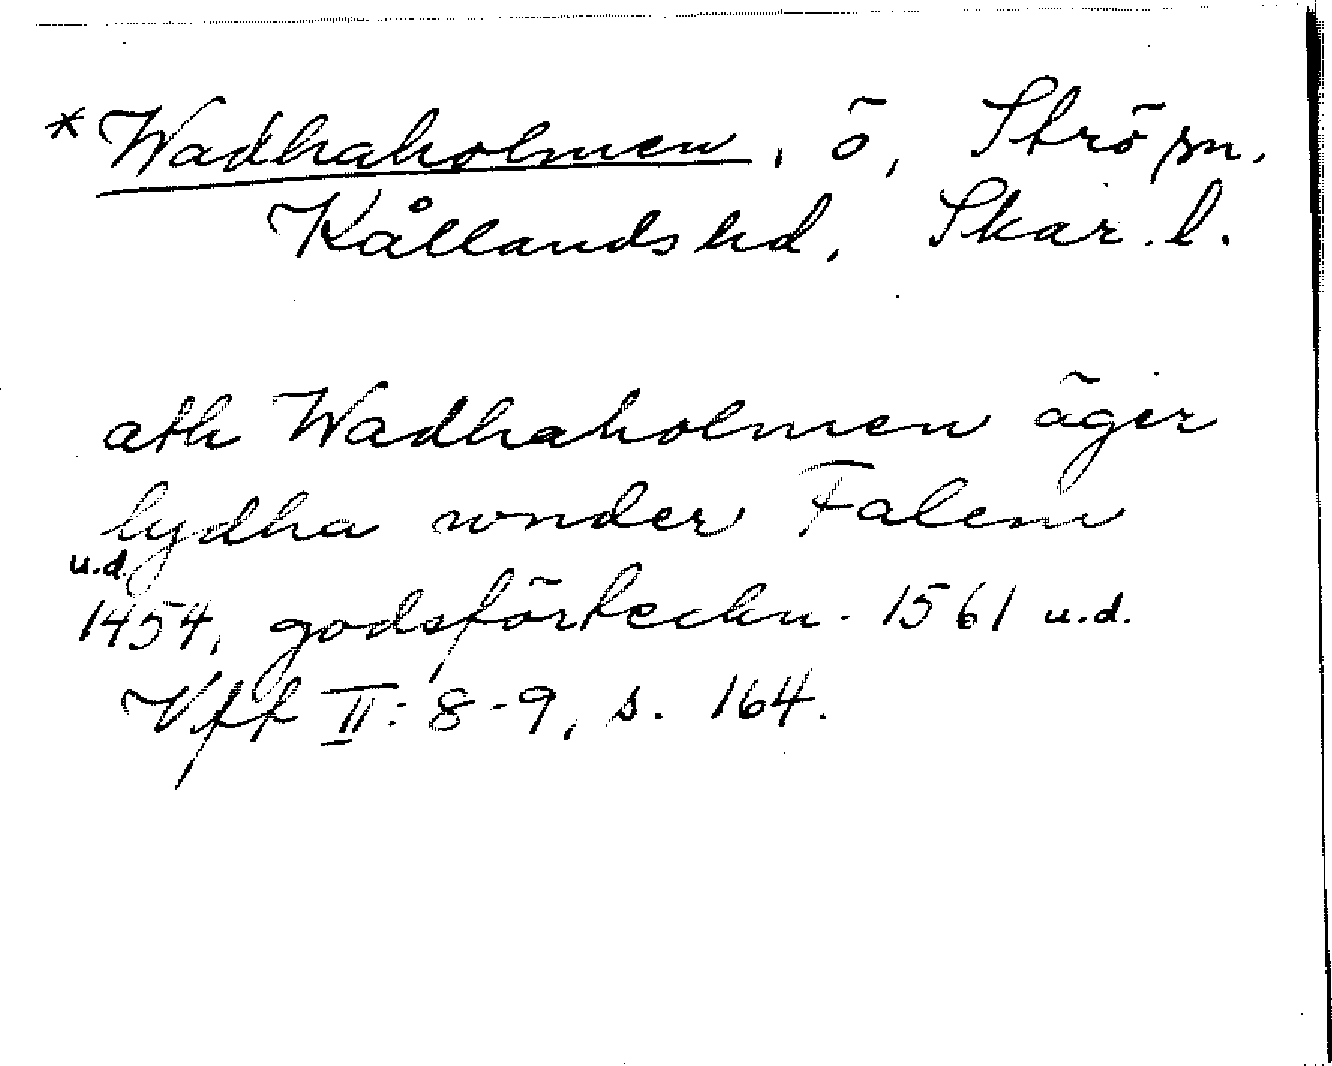 *Wadhaholmen, ö, Strö sn,
Kållands hd, Skar. l.
ath Wadhaholmen äger
lydha wnder Falem
u.d.
1454, godsförteckn. 1561 u.d.
Vff II: 8-9, s. 164.